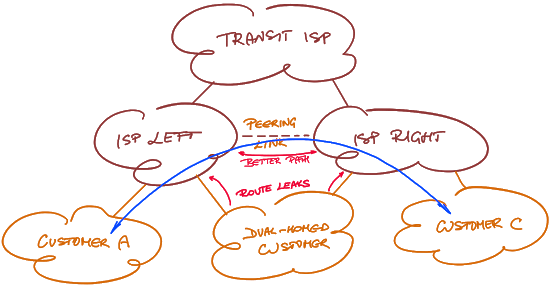 TRANSIT ISP
PEERING
LINK
ISP LEFT
ISP RIGHT
BETTER PATH
ROUTE LEAKS
CUSTOMER A
DUAL-HOMED
CUSTOMER
CUSTOMER C